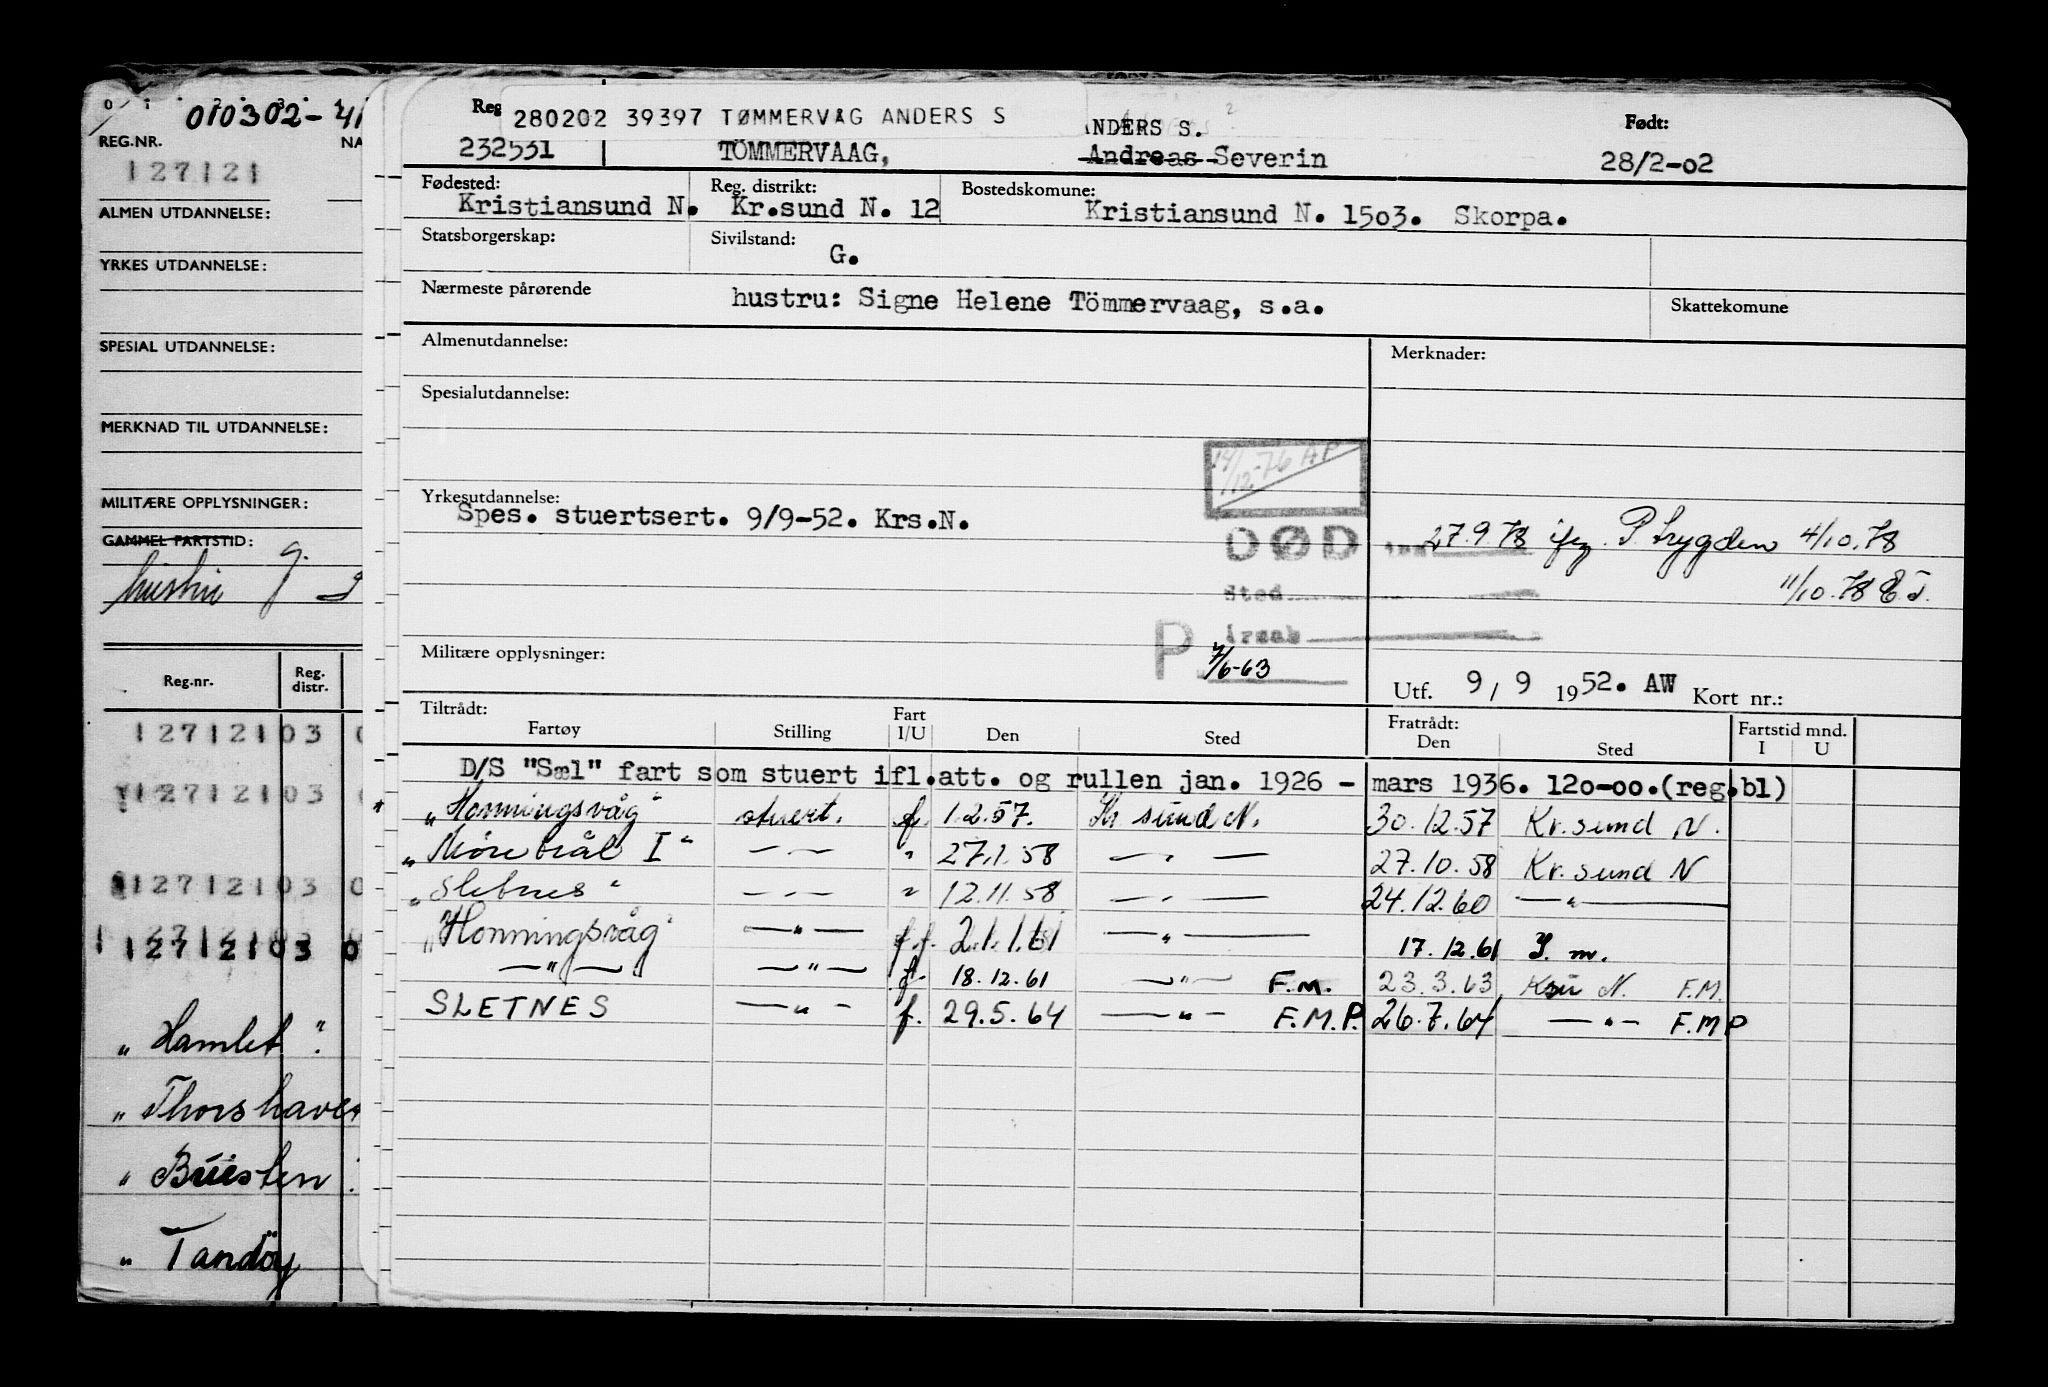 0 1 2 3 4
010302-41
REG.NR.
NA
127121
ALMEN UTDANNELSE:
YRKES UTDANNELSE:
SPESIAL UTDANNELSE:
MERKNAD TIL UTDANNELSE:
MILITÆRE OPPLYSNINGER:
GAMMEL FARTSTID:
hustru g.
Reg.nr. Reg. distr.
12712103 0
12712103
12712103 0
12712103 0
„ Hamlet "
„ Thorshaven
„ Buesten
„ Tandöy
Reg
280202 39397 TØMMERVÅG ANDERS S
ANDERS S.
Født:
232531 TÖMMERVAAG, Andreas Severin 28/2-02
Fødested: Reg. distrikt: Bostedskomune:
Kristiansund N. Kr.sund N. 12 Kristiansund N. 1503. Skorpa.
Statsborgerskap: Sivilstand:
G.
Nærmeste pårørende hustru: Signe Helene Tömmervaag, s.a. Skattekomune
Almenutdannelse: Merknader:
Spesialutdannelse:
14/12-76 AP
Yrkesutdannelse:
Spes. stuertsert. 9/9-52. Krs.N.
DØD 27.9.78 ifg. P trygden 4/10.78
Sted 11/10.78 E.T.
P årsak
Militære opplysninger: 7/6-63
Utf. 9/ 9 1952. AW Kort nr.:
Tiltrådt: Fart Fratrådt: Fartstid mnd.
Fartøy Stilling I/U Den Sted Den Sted I U
D/S "Sæl" fart som stuert ifl.att. og rullen jan. 1926 - mars 1936. 120-00.(reg.bl)
„Honningsvåg" stuert. f. 1.2.57. Kr sund N. 30.12.57 Kr.sund N.
„Møretrål I" —„— " 27.1.58 —„— 27.10.58 Kr.sund N
„Sletnes" —„— " 12.11.58 —„— 24.12.60 —„—
„Honningsvåg" —„— f.f. 2.1.61 —„— 17.12.61 S.m.
—„— —„— f. 18.12.61 —„— F.M. 23.3.63 Ksu N. F.M.
SLETNES —„— f. 29.5.64 —„— F.M.P. 26.7.64 —„— F.M.P